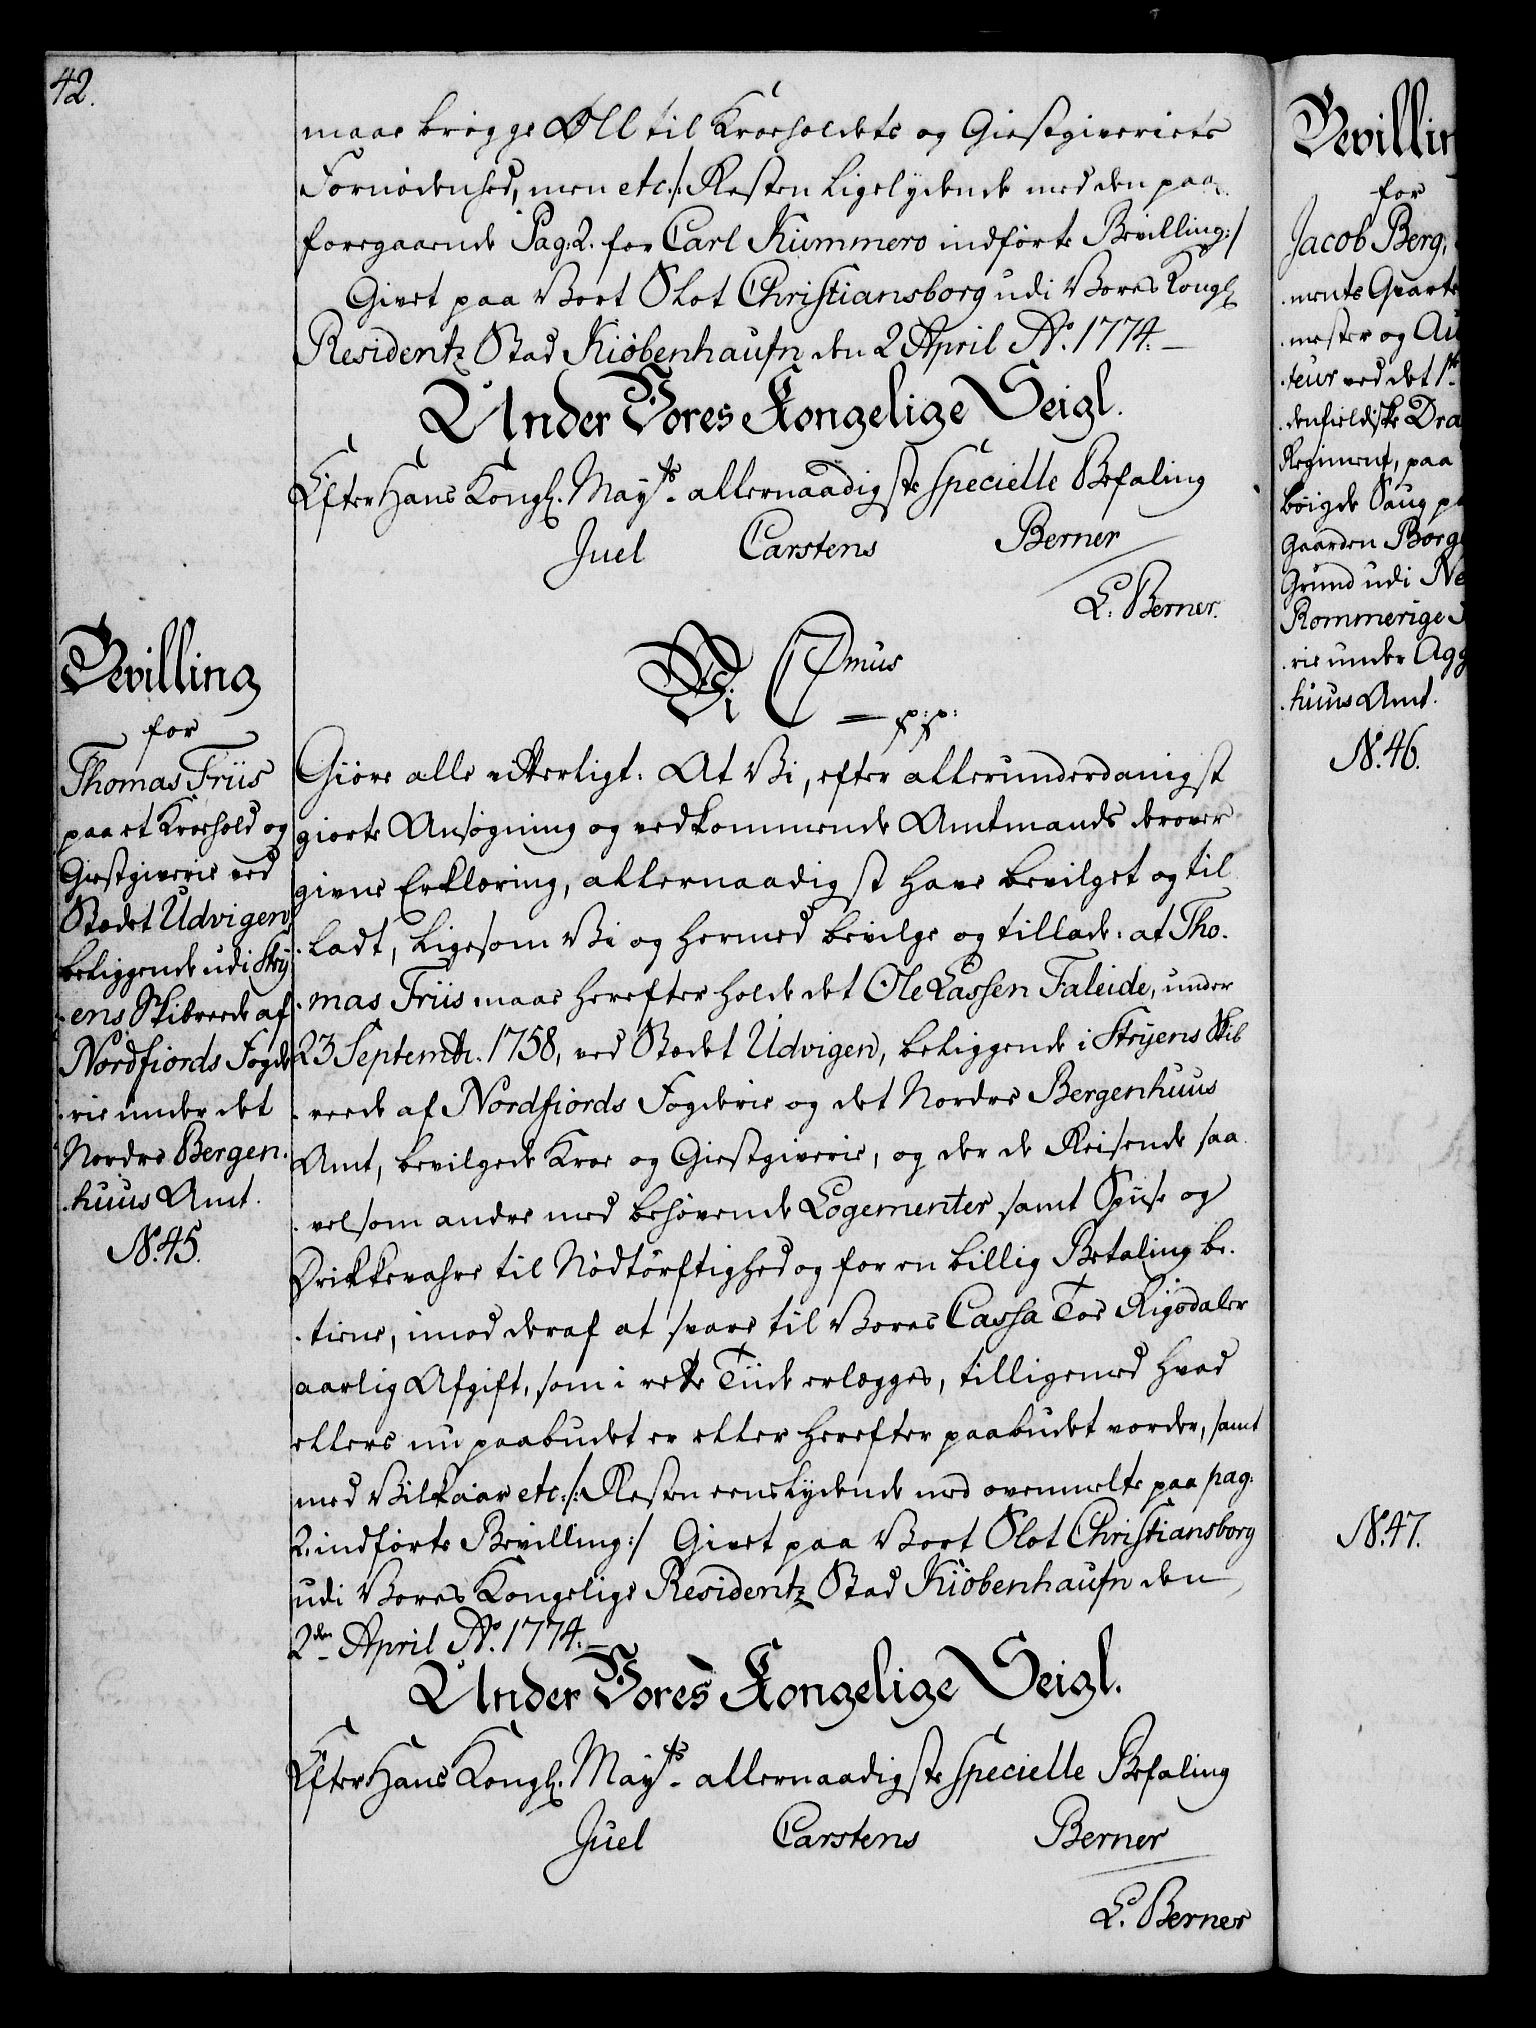 42.
maae brøgge Øll til Kroeholdets og Giestgiveriets
Fornødenhed, men etc:/: Resten ligelydende med den paa
foregaaende Pag: 2. for Carl Kummero indførte Bevilling:/
Givet paa Vort Slot Christiansborg udi Vores Kongl
Residentz Stad Kiøbenhaufn den 2 April Aº. 1774.
Under Vores Kongelige Seigl.
Efter Hans Kongl. Mayts. allernaadigste specielle Befaling
Juel Carstens Berner
L. Berner.
Bevilling
for
Thomas Friis
paa et Kroehold og
Giestgiverie ved
Stædet Udvigen
beliggende udi Stry
ens Skibreede af
Nordfiords Fogde
.rie under det
Nordre Bergen.
.huus Amt.
N. 45.
Vi C7mus
p:p:
Giøre alle vitterligt: At Vi, efter allerunderdanigst
giorte Ansøgning og vedkommende Amtmands derover
givne Erklæring, allernaadigst have bevilget og til
.ladt, ligesom Vi og hermed bevilge og tillade: at Tho.
.mas Friis maae herefter holde det Ole Lassen Faleide, under
23 Septembr. 1758, ved Stædet Udvigen, beliggende i Stryens Skib
.reede af Nordfiords Fogderie og det Nordre Bergenhuus
Amt, bevilgede Kroe og Giestgiverie, og der de Reisende saa
.vel som andre med behøvende Logementer samt Spise og
Drikkevahre til Nødtørftighed og for en billig Betaling be.
.tiene, imod deraf at svare til Vores Cassa Toe Rigsdaler
aarlig Afgift, som i rette Tiide erlægges, tilligemed hvad
ellers nu paabudet er eller herefter paabudet vorder, samt
med Vilkaar etc:/: Resten eenslydende med ovenmelte paa pag:
2. indførte Bevilling:/ Givet paa Vort Slot Christiansborg
udi Vores Kongelige Residentz Stad Kiøbenhaufn den
2den April Aº. 1774.
Under Vores Kongelige Seigl.
Efter Hans Kongl. Mayts. allernaadigste specielle Befaling
Juel Carstens Berner
L. Berner
Bevillin
for
Jacob Berg,
.ments Qvarte
.mester og Au
.teur ved det 1ste
.denfieldske Dra
Regiment, paa
bøigde Saug p
Gaarden Borg
Grund udi Ne
Rommerige
.rie under Agg
.huus Amt.
N. 46.
N. 47.